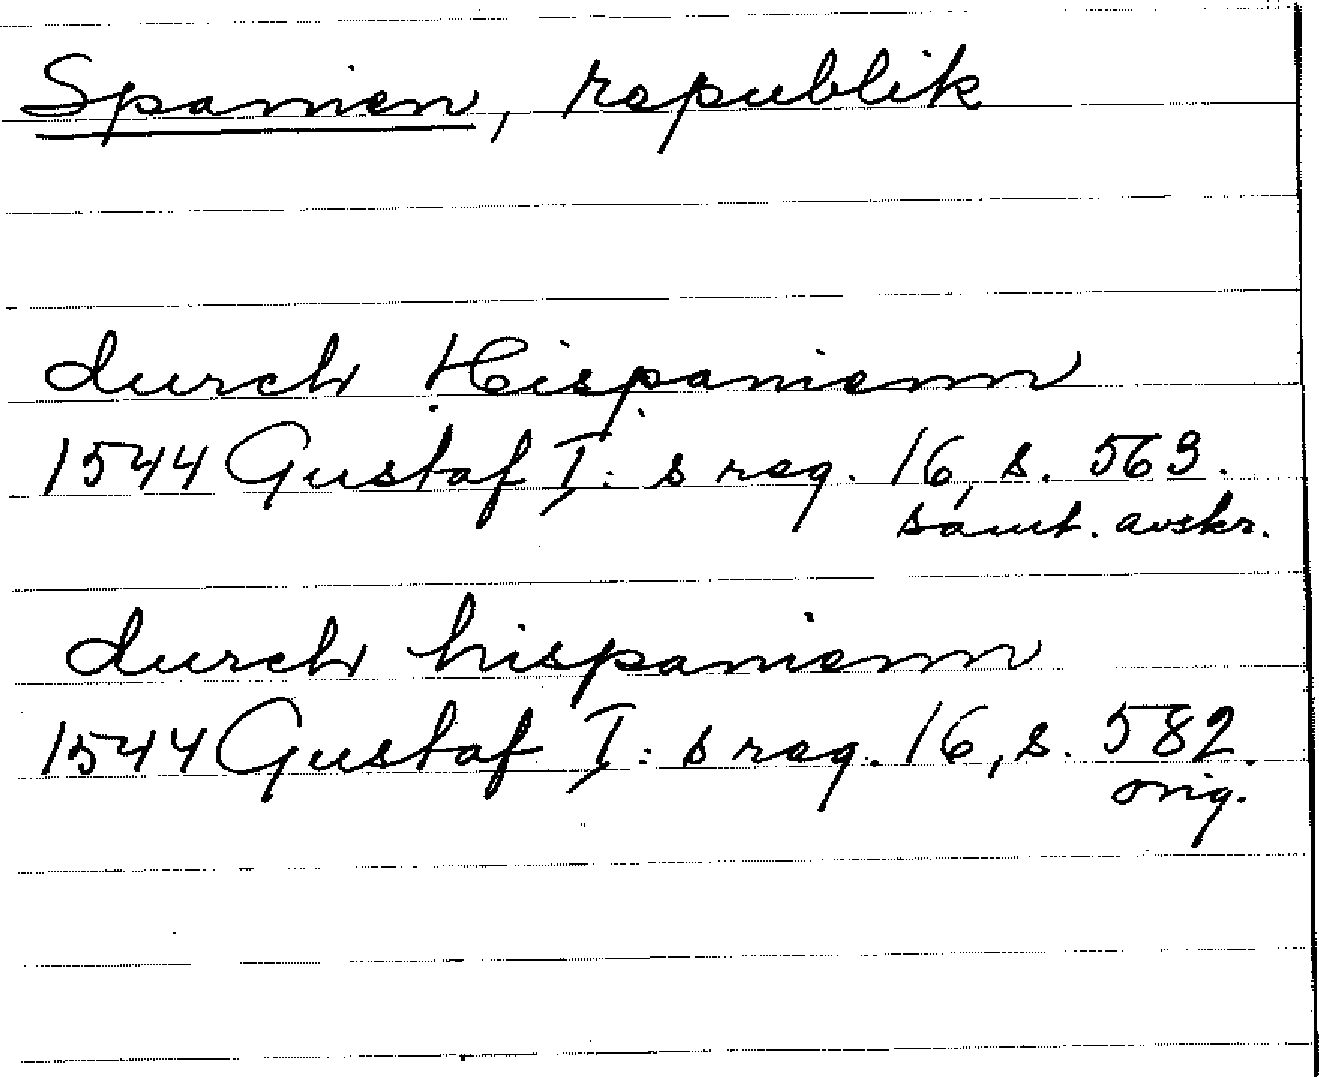 Spanien, republik
durch Hispanienn
1544 Gustaf I:s reg. 16, s. 563.
samt. avskr.
durch hispanienn
1544 Gustaf I:s reg. 16, s. 582.
orig.